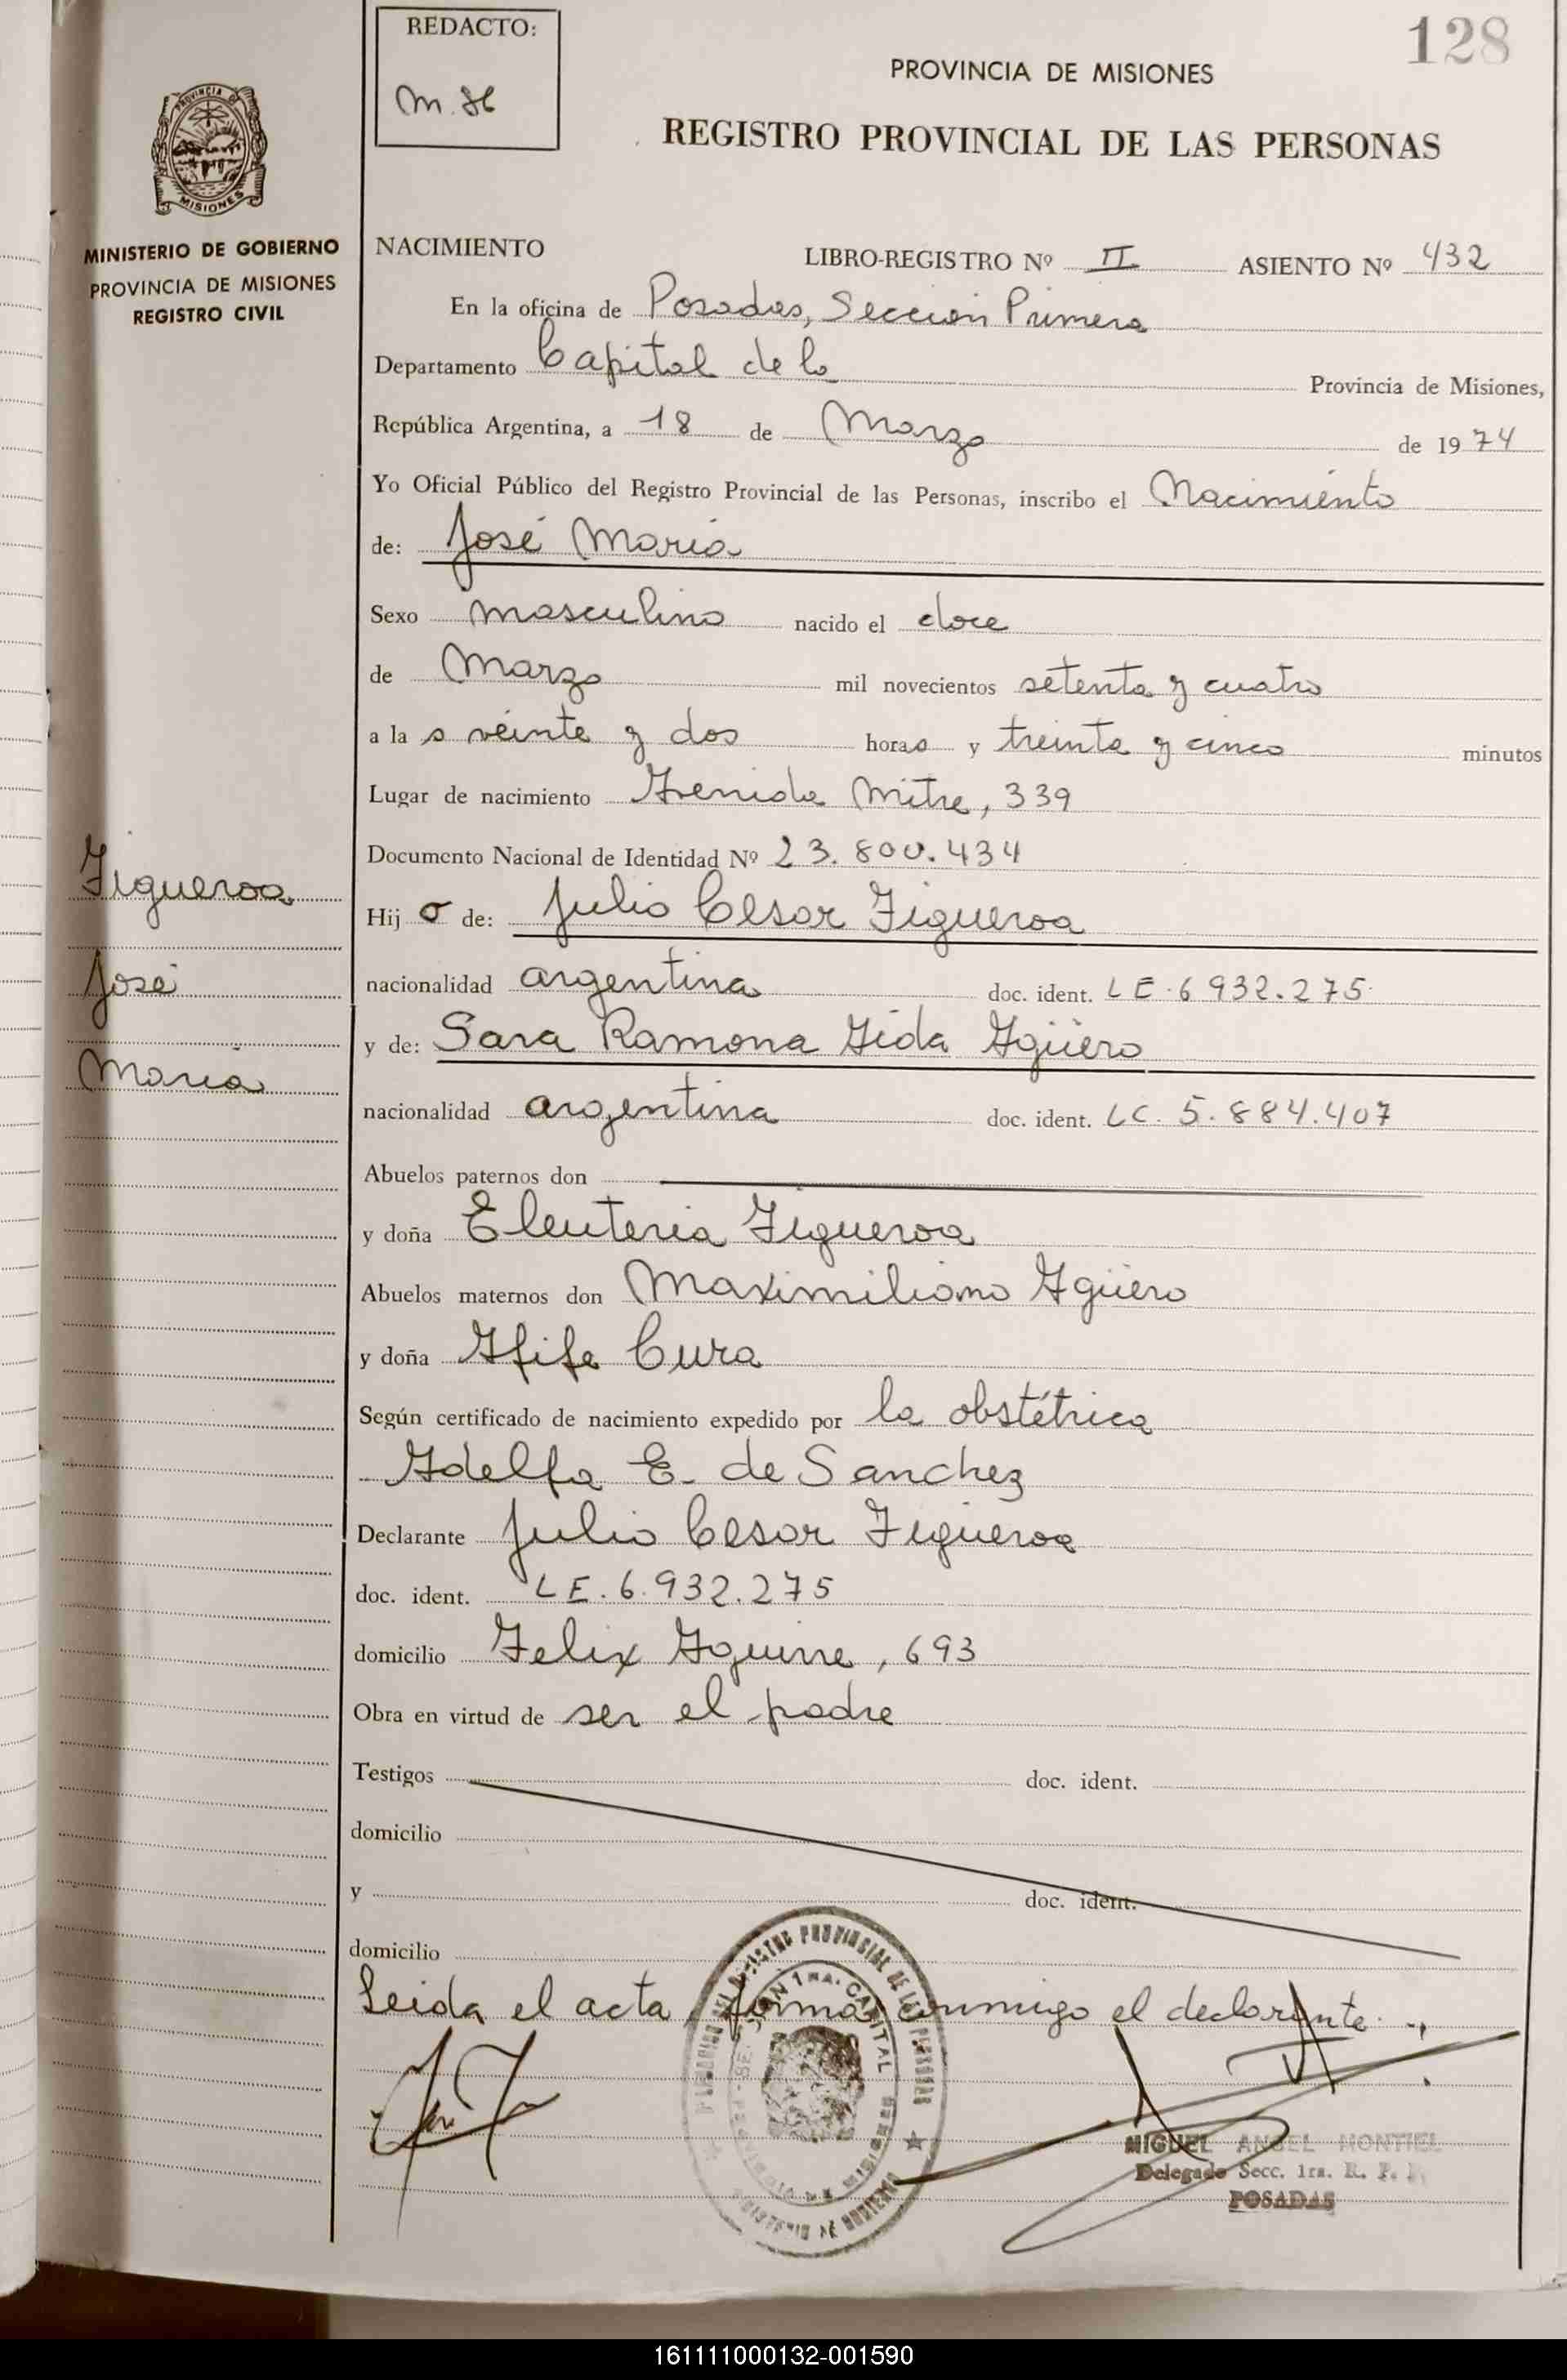 128
REDACTO:
M.H
PROVINCIA DE MISIONES
REGISTRO PROVINCIAL DE LAS PERSONAS
PROVINCIA DE
MISIONES
MINISTERIO DE GOBIERNO
PROVINCIA DE MISIONES
REGISTRO CIVIL
NACIMIENTO LIBRO-REGISTRO Nº II ASIENTO Nº 432
En la oficina de Posadas, Sección Primera
Departamento Capital de la Provincia de Misiones,
República Argentina, a 18 de Marzo de 1974
Yo Oficial Público del Registro Provincial de las Personas, inscribo el Nacimiento
de: José María
Sexo masculino nacido el doce
de Marzo mil novecientos setenta y cuatro
a las veinte y dos horas y treinta y cinco minutos
Lugar de nacimiento Avenida Mitre, 339
Documento Nacional de Identidad Nº 23.800.434
Hijo de: Julio Cesar Figueroa
nacionalidad argentina doc. ident. LE. 6 932.275
y de: Sara Ramona Aida Agüero
nacionalidad argentina doc. ident. LC. 5.884.407
Abuelos paternos don
y doña Eleuteria Figueroa
Abuelos maternos don Maximiliano Agüero
y doña Afife Cura
Según certificado de nacimiento expedido por la obstétrica
Adelfa E. de Sanchez
Declarante Julio Cesar Figueroa
doc. ident. LE. 6.932.275
domicilio Felix Aguirre, 693
Obra en virtud de ser el padre
Testigos doc. ident.
domicilio
y doc. ident.
domicilio
Leida el acta, firma conmigo el declarante.
Figueroa
José
María
REGISTRO PROVINCIAL DE LAS PERSONAS
1RA. CAPITAL
MINISTERIO DE GOBIERNO
MIGUEL ANGEL MONTIEL
Delegado Secc. 1ra. R. P. P.
POSADAS
161111000132-001590